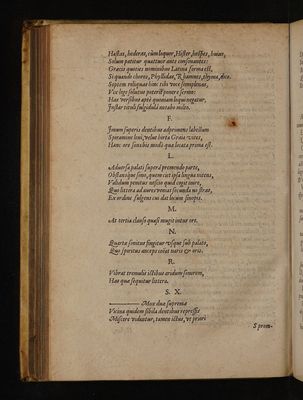 Hastas, hederas, cùm loquor, Hister, hospes, huius,
Solum patitur quattuor ante consonantes:
Græcis quoties nominibus Latina forma est,
Si quando chorus, Phyllidas, Rhamnes,
Septem reliquas hinc tibi voce semplenas,
Vix lege solutus poterit ponere sermo:
Has versibus aptè quoniam loqui negatur,
Instar tituli fulgidula notabo milto.
F.
Imum superis dentibus adprimens labellum
Spiramine leni, velut hirta Graia vites,
Hanc ore sonabis modò quæ locata prima est.
L.
Aduersa palati superâ premendo parte,
Obstansque sono, quem ciet ipsa lingua nitens,
Validum penitus nescio quid cogit
Quo littera ad aures veniat secunda nostras,
Ex ordine fulgens cui dat locum sinopis.
M.
At tertia clauso quasi mugit intus ore.
N.
Quartæ sonitus fingitur vsque sub palato,
Quo spiritus anceps coëat naris & oris.
R.
Vibrat tremulis ictibus aridum sonorem,
Has quæ sequitur littera.
S. X.
Mox duæ supremæ
Vicina quidem sibila dentibus repressis
Miscere videntur, tamen ictus, vt priori
S prom-